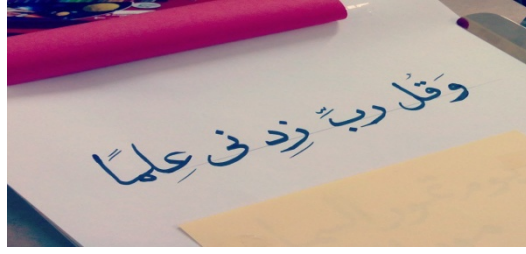 وَقُل ربِّ زِد نى عِلمًا